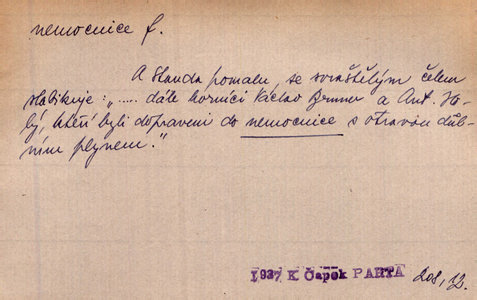 nemocnice f.
A Standa pomalu, se svraštělým čelem
slabikuje: „..... dále horníci Václav Bruner a Ant. Ho-
lý, kteří byli dopraveni do nemocnice s otravou důl-
ním plynem."
1937 K Čapek PARTA 208, 12.